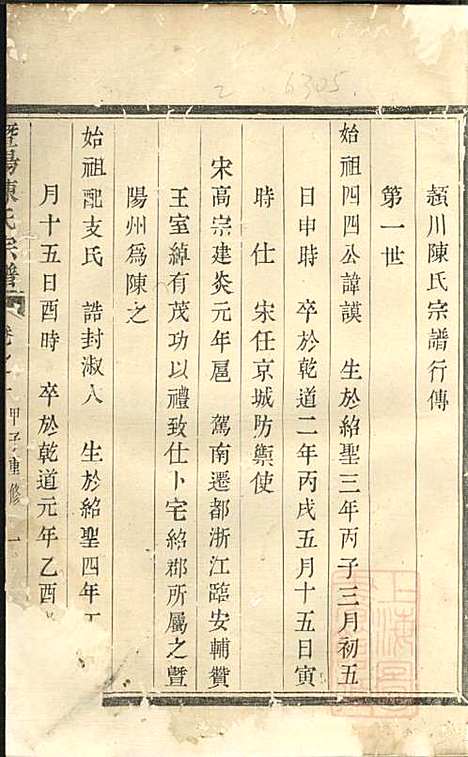 2 6305
潁川陳氏宗譜行傳
第一世
始祖四四公諱謨 生於紹聖三年丙子三月初五
日申時 卒於乾道二年丙戌五月十五日寅
時 仕 宋任京城防禦使
宋高宗建炎元年扈 駕南遷都浙江臨安輔贊
王室綽有茂功以禮致仕卜宅紹郡所屬之曁
陽州爲陳之
始祖配支氏 誥封淑人 生於紹聖四年丁
月十五日酉時 卒於乾道元年乙酉
暨陽陳氏宗譜 甲子重修 一
上海